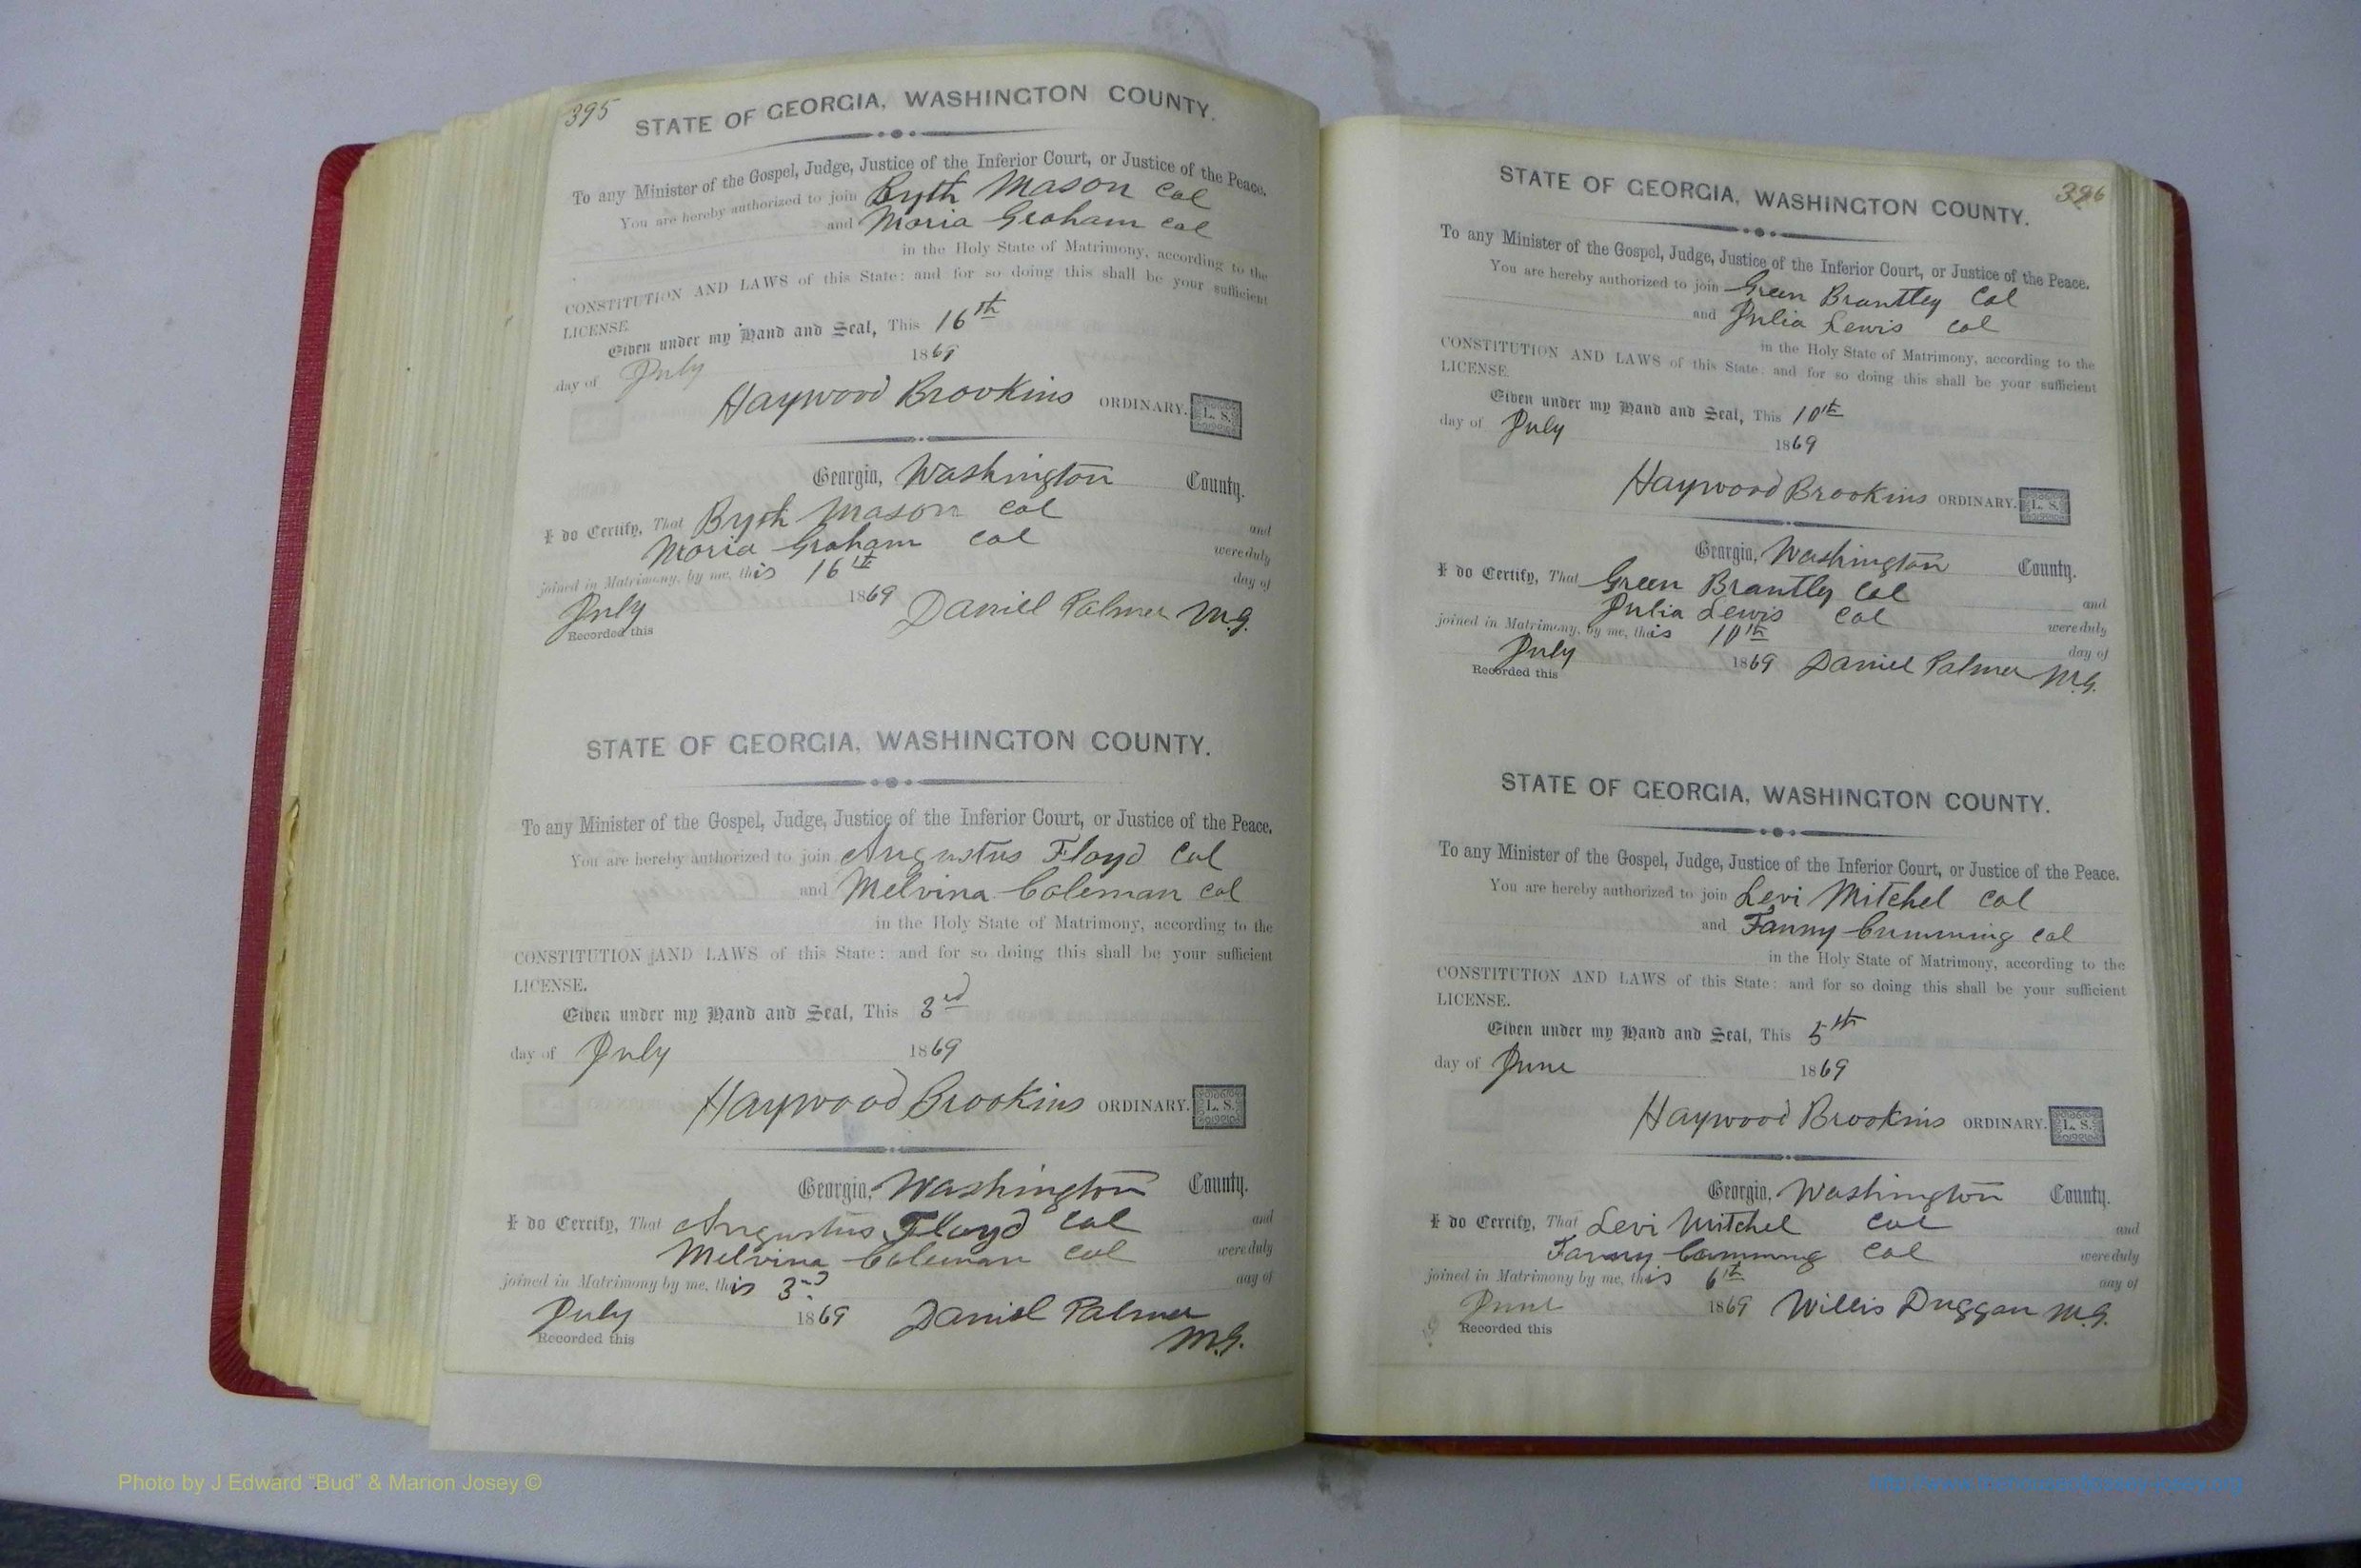 395
STATE OF GEORGIA, WASHINGTON COUNTY.
To any Minister of the Gospel, Judge, Justice of the Inferior Court, or Justice of the Peace.
You are hereby authorized to join Byth Mason Col
and Moria Graham Col
in the Holy State of Matrimony, according to the
CONSTITUTION AND LAWS of this State: and for so doing this shall be your sufficient
LICENSE.
Given under my Hand and Seal, This 16th
day of July 1869
Haywood Brookins ORDINARY. L. S.
Georgia, Washington County.
I do Certify, That Byth Mason Col and
Moria Graham Col were duly
joined in Matrimony, by me, this 16th day of
July 1869 Daniel Palmer M.G.
Recorded this
STATE OF GEORGIA, WASHINGTON COUNTY.
To any Minister of the Gospel, Judge, Justice of the Inferior Court, or Justice of the Peace,
You are hereby authorized to join Augustus Floyd Col
and Melvina Coleman Col
in the Holy State of Matrimony, according to the
CONSTITUTION AND LAWS of this State: and for so doing this shall be your sufficient
LICENSE.
Given under my Hand and Seal, This 3rd
day of July 1869
Haywood Brookins ORDINARY. L. S.
Georgia, Washington County.
I do Certify, That Augustus Floyd Col and
Melvina Coleman Col were duly
joined in Matrimony by me, this 3rd day of
July 1869 Daniel Palmer
M.G.
Recorded this
396
STATE OF GEORGIA, WASHINGTON COUNTY.
To any Minister of the Gospel, Judge, Justice of the Inferior Court, or Justice of the Peace.
You are hereby authorized to join Green Brantley Col
and Julia Lewis Col
in the Holy State of Matrimony, according to the
CONSTITUTION AND LAWS of this State: and for so doing this shall be your sufficient
LICENSE.
Given under my Hand and Seal, This 10th
day of July 1869
Haywood Brookins ORDINARY. L. S.
Georgia, Washington County.
I do Certify, That Green Brantley Col and
Julia Lewis Col were duly
joined in Matrimony, by me, this 10th day of
July 1869 Daniel Palmer M.G.
Recorded this
STATE OF GEORGIA, WASHINGTON COUNTY.
To any Minister of the Gospel, Judge, Justice of the Inferior Court, or Justice of the Peace.
You are hereby authorized to join Levi Mitchel Col
and Fanny Cumming Col
in the Holy State of Matrimony, according to the
CONSTITUTION AND LAWS of this State: and for so doing this shall be your sufficient
LICENSE.
Given under my Hand and Seal, This 5th
day of June 1869
Haywood Brookins ORDINARY. L. S.
Georgia, Washington County.
I do Certify, That Levi Mitchel Col and
Fanny Cumming Col were duly
joined in Matrimony by me, this 6th day of
June 1869 Willis Duggan M.G.
Recorded this
Photo by J Edward “Bud” & Marion Josey ©